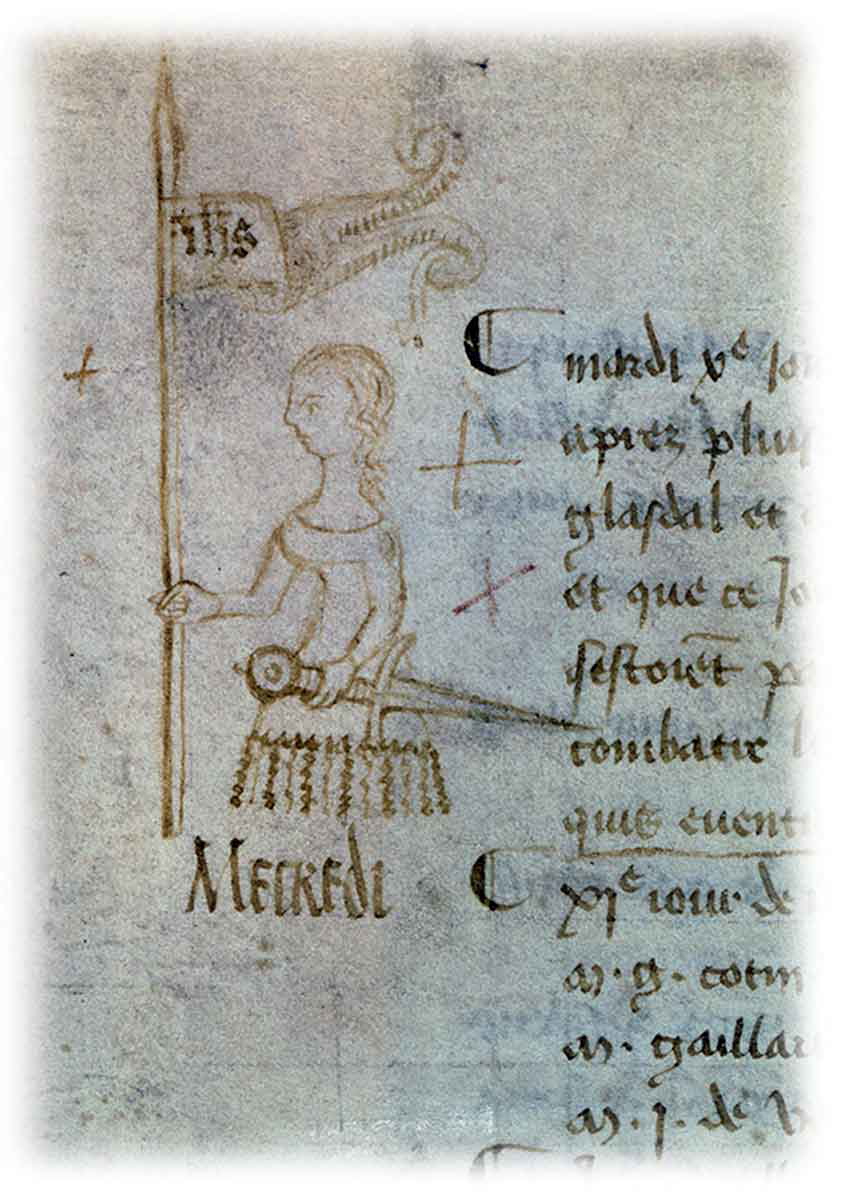 ihs
mardi xe jou
aprez plus
glasdal et
et que ce Jo
sestoiēt
combatre
quis euent
Mecredi
xje iour de
m. g. cotin
m. gaillar
m. j. de